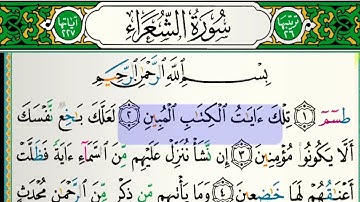 ترتيبها ٢٦ سُورَةُ الشُّعَرَاءِ آياتها ٢٢٧
بِسْمِ اللَّهِ الرَّحْمَٰنِ الرَّحِيمِ
طسٓمٓ ١ تِلْكَ ءَايَٰتُ الْكِتَٰبِ الْمُبِينِ ٢ لَعَلَّكَ بَٰخِعٌ نَّفْسَكَ
أَلَّا يَكُونُوا۟ مُؤْمِنِينَ ٣ إِن نَّشَأْ نُنَزِّلْ عَلَيْهِم مِّنَ السَّمَآءِ ءَايَةً فَظَلَّتْ
أَعْنَٰقُهُمْ لَهَا خَٰضِعِينَ ٤ وَمَا يَأْتِيهِم مِّن ذِكْرٍ مِّنَ الرَّحْمَٰنِ مُحْدَثٍ